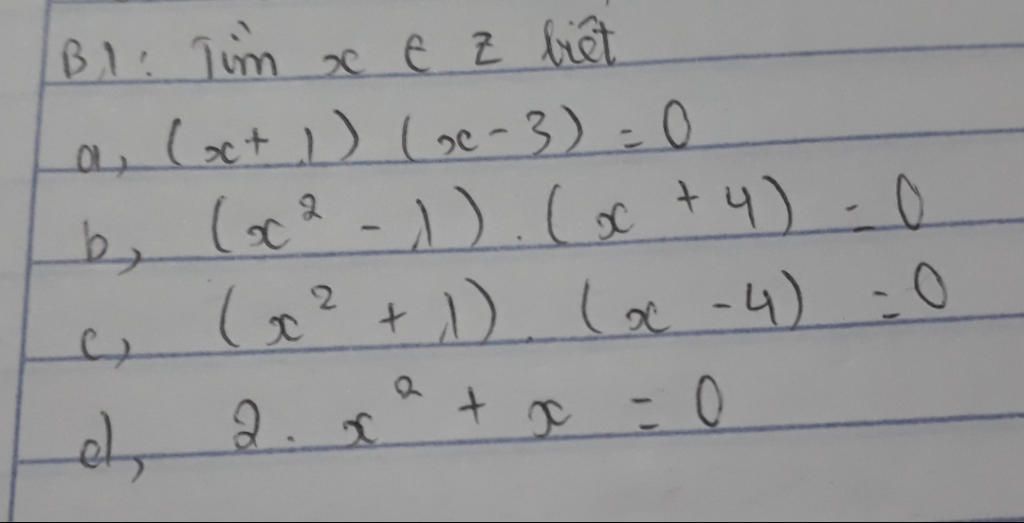 B.1: Tìm x ∈ Z biết
a, (x + 1) (x - 3) = 0
b, (x² - 1) . (x + 4) = 0
c, (x² + 1) . (x - 4) = 0
d, 2 . x² + x = 0